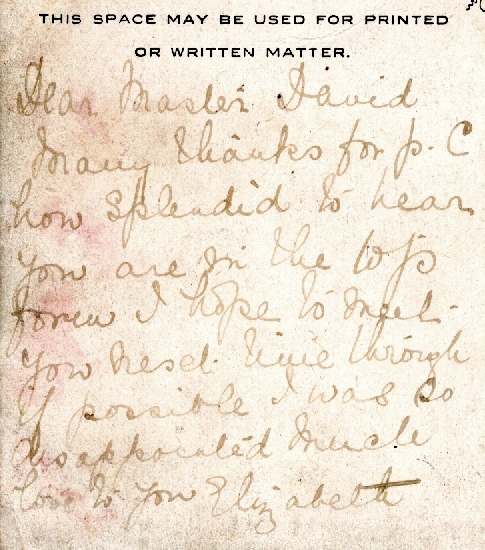 THIS SPACE MAY BE USED FOR PRINTED
OR WRITTEN MATTER.
Dear Master David
Many thanks for p. C
how splendid to hear
you are in the top
form I hope to meet
you next time through
if possible I was so
disappointed much
love to you Elizabeth